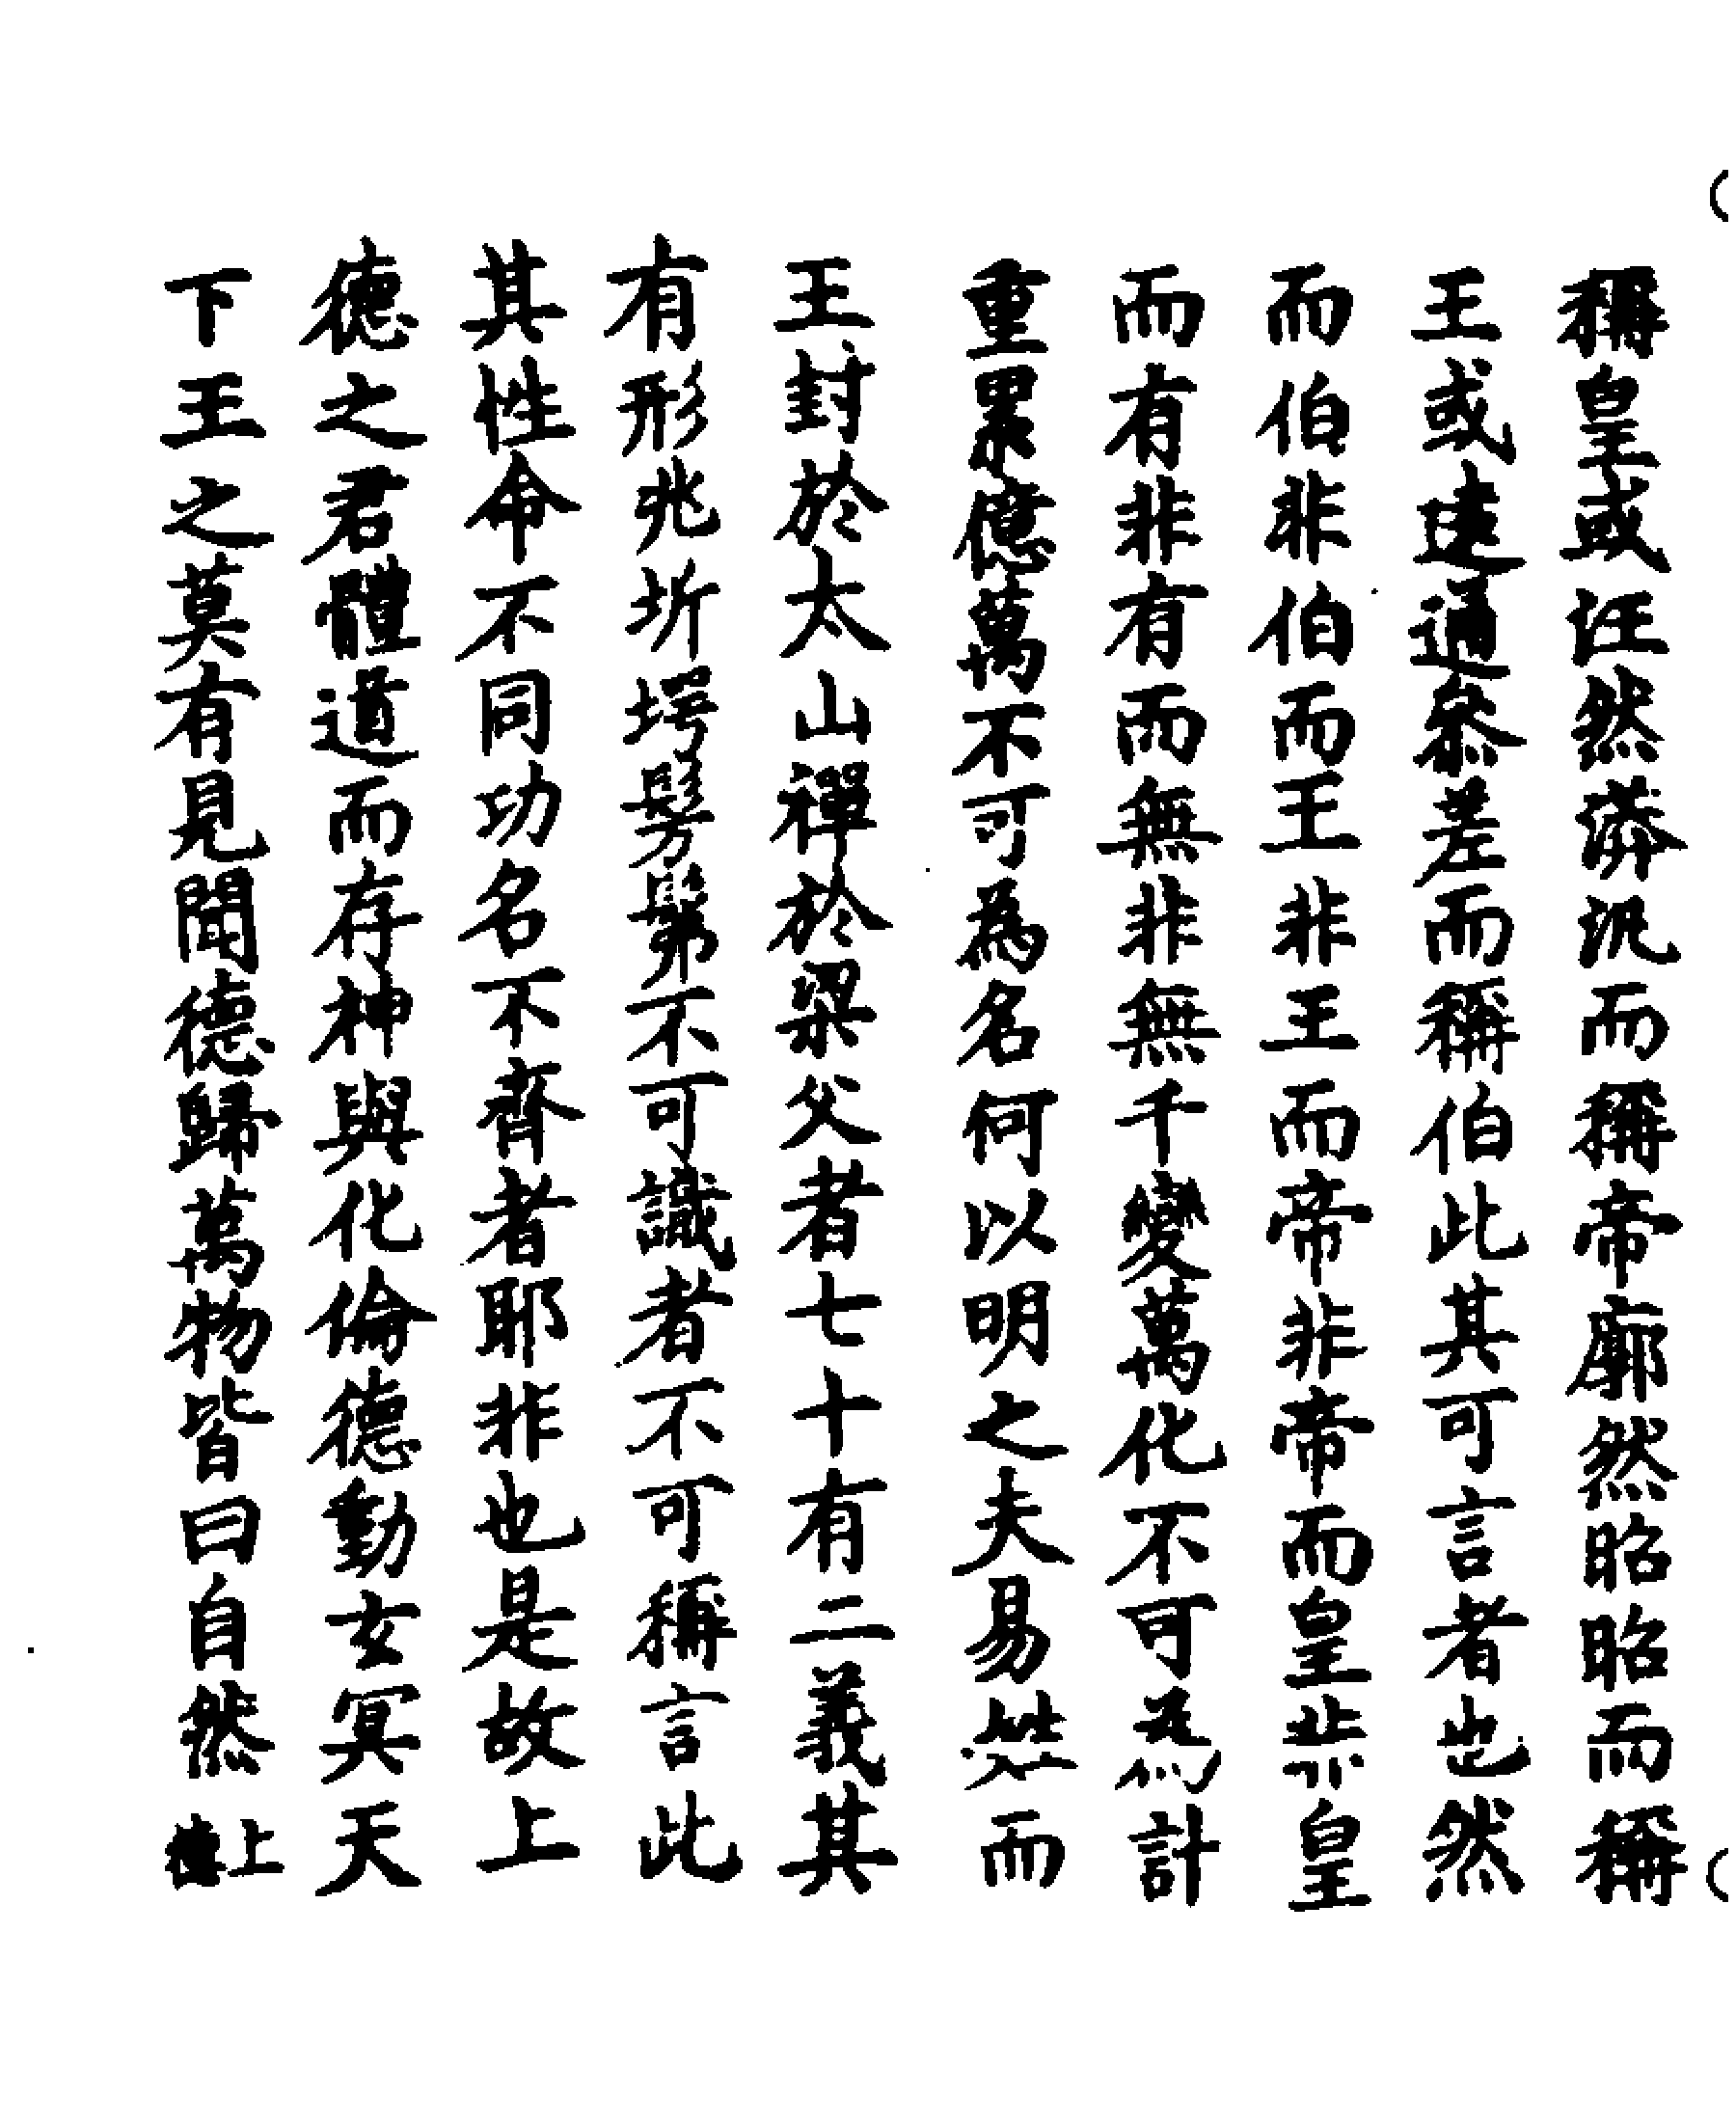 稱皇或汪然漭汎而稱帝廓然昭昭而稱
王或遠通叅差而稱伯此其可言者也然
而伯非伯而王非王而帝非帝而皇非皇
而有非有而無非無千變萬化不可為計
重累億萬不可為名何以明之夫易姓而
王封於太山禪於梁父者七十有二義其
有形兆圻堮髣髴不可識者不可稱言此
其性命不同功名不齊者耶非也是故上
德之君體道而存神與化倫德動玄冥天
下王之莫有見聞德歸萬物皆曰自然上
德